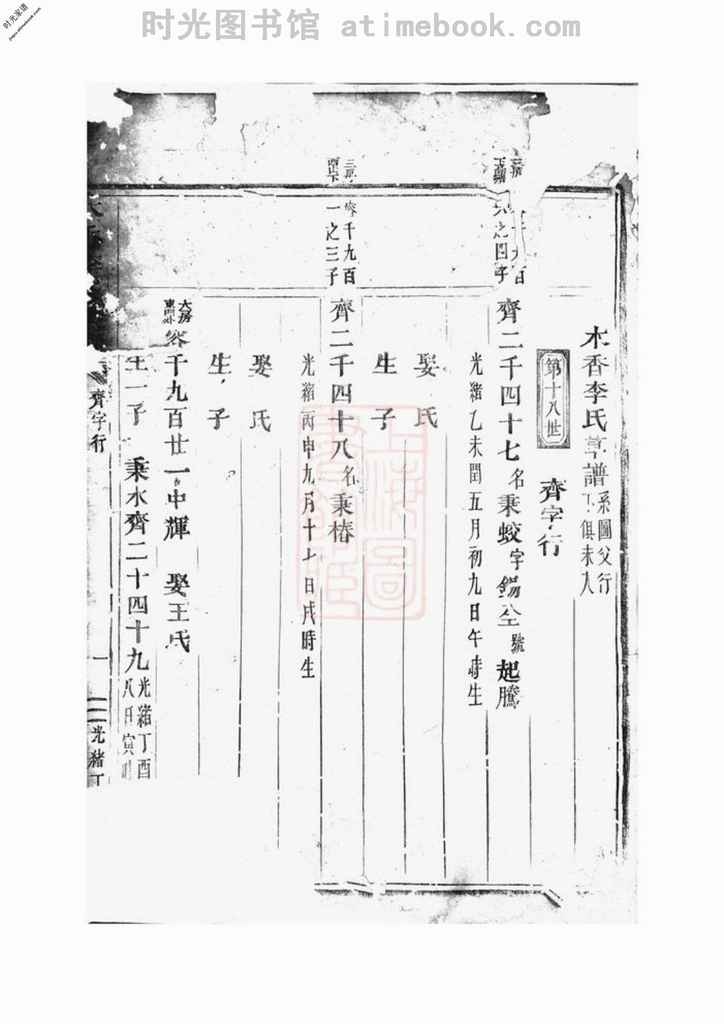 时光图书馆 atimebook.com
时光家谱
木香李氏草譜 系圖父行 下俱未入
第十八世
齊字行
之四子
齊二千四十七 名秉蛟 字錫全 號起騰
光緒乙未閏五月初九日午時生
娶 氏
生 子
齊千九百
一之三子
齊二千四十八 名秉椿
光緒丙申九月十七日戌時生
娶 氏
生 子
大房
容千九百廿一 中輝 娶王氏
生一子 秉水 齊二千四十九 光緒丁酉
八日寅
齊字行
一
光緒丁